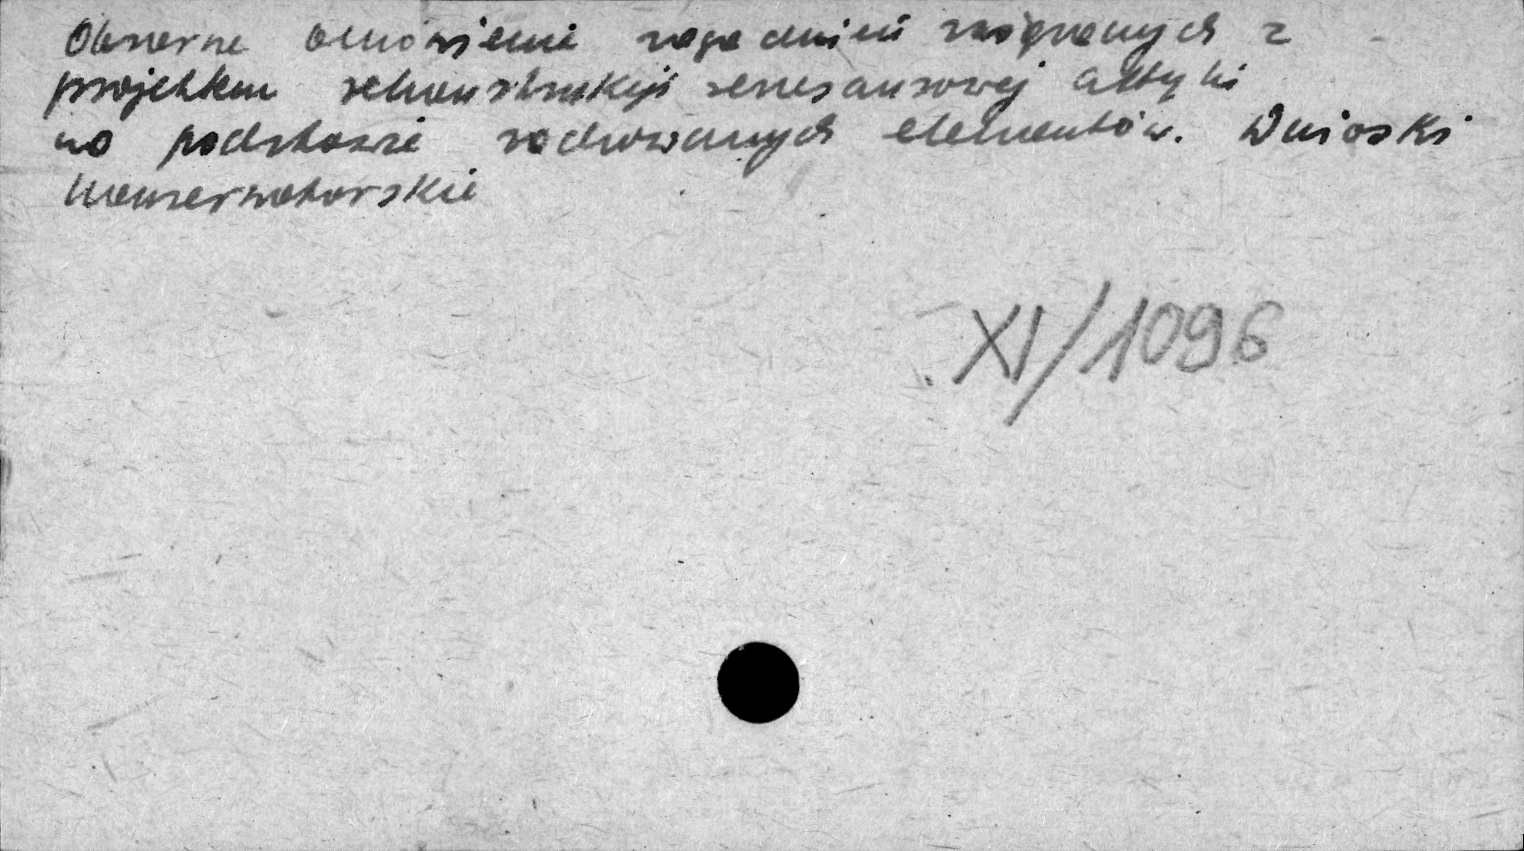 Obszerne omówienie zagadnień związanych z
projektem rekonstrukcji renesansowej attyki
na podstawie zachowanych elementów. Wnioski
konserwatorskie
XI/1096